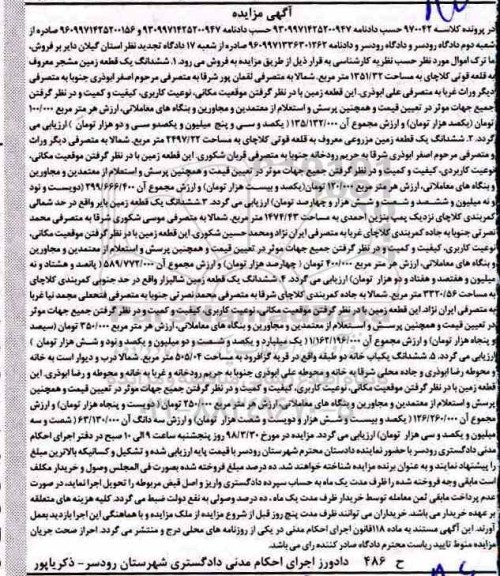 آگهی مزایده
در پرونده کلاسه ۹۷۰۰۴۲ حسب دادنامه ۹۳۰۹۹۷۱۴۲۵۲۰۰۹۴۷ حسب دادنامه ۹۳۰۹۹۷۱۴۲۵۲۰۰۹۴۷ و ۹۶۰۹۹۷۱۴۲۵۲۰۰۱۵۶ صادره از
شعبه دوم دادگاه رودسر و دادگاه رودسر و دادنامه ۹۶۰۹۹۷۱۳۳۶۳۰۱۲۶۲ صادره از شعبه ۱۷ دادگاه تجدید نظر استان گیلان دایر بر فروش،
ما ترک اموال مورد نظر حسب نظریه کارشناسی به قرار ذیل از طریق مزایده به فروش می رود. ۱. ششدانگ یک قطعه زمین مشجر معروف
به قلعه قوتی کلاچای به مساحت ۱۳۵۱/۳۲ متر مربع. شمالا به متصرفی لقمان پور شرقا به متصرفی مرحوم اصغر ابوذری جنوبا به متصرفی
دیگر وراث غربا به متصرفی علی ابوذری. این قطعه زمین با در نظر گرفتن موقعیت مکانی، نوعیت کاربری، کیفیت و کمیت و در نظر گرفتن
جمیع جهات موثر در تعیین قیمت و همچنین پرسش و استعلام از معتمدین و مجاورین و بنگاه های معاملاتی، ارزش هر متر مربع ۱۰۰/۰۰۰
تومان (یکصد هزار تومان) و ارزش مجموع آن ۱۳۵/۱۳۲/۰۰۰ ( یکصد و سی و پنج میلیون و یکصدو سی و دو هزار تومان ) ارزیابی می
گردد. ۲. ششدانگ یک قطعه زمین مزروعی معروف به قلعه قوتی کلاچای به مساحت ۲۴۹۷/۲۲ متر مربع. شمالا به متصرفی دیگر وراث
و متصرفی مرحوم اصغر ابوذری شرقا به حریم رودخانه جنوبا به متصرفی قربان شکوری. این قطعه زمین با در نظر گرفتن موقعیت مکانی،
نوعیت کاربردی، کیفیت و کمیت و در نظر گرفتن جمیع جهات موثر در تعیین قیمت و همچنین پرسش و استعلام از معتمدین و مجاورین
و بنگاه های معاملاتی، ارزش هر متر مربع ۱۲۰/۰۰۰ تومان(یکصد و بیست هزار تومان) و ارزش مجموع آن ۲۹۹/۶۶۶/۴۰۰ (دویست و نود
و نه میلیون و ششصد و شصت و شش هزار و چهارصد تومان) ارزیابی می گردد. ۳.ششدانگ یک قطعه زمین بایر واقع در حد شمالی
کمربندی کلاچای نزدیک پمپ بنزین احمدی به مساحت ۱۴۷۴/۴۳ متر مربع. شمالا به متصرفی موسی شکوری شرقا به متصرفی محمد
نصرتی جنوبا به جاده کمربندی کلاچای غربا به متصرفی ایران نژاد ومحمد حسین شکوری. این قطعه زمین با در نظر گرفتن موقعیت مکانی،
نوعیت کاربری، کیفیت و کمیت و در نظر گرفتن جمیع جهات موثر در تعیین قیمت و همچنین پرسش و استعلام از معتمدین و مجاورین
و بنگاه های معاملاتی، ارزش هر متر مربع ۴۰۰/۰۰۰ تومان ( چهارصد هزار تومان) و ارزش مجموع آن ۵۸۹/۷۷۲/۰۰۰ ( پانصد و هشتاد و نه
میلیون و هفتصد و هفتاد و دو هزار تومان) ارزیابی می گردد. ۴. ششدانگ یک قطعه زمین شالیزار واقع در حد جنوبی کمربندی کلاچای
به مساحت ۳۳۲۰/۵۶ متر مربع. شمالا به جاده کمربندی کلاچای شرقا به متصرفی محمد نصرتی جنوبا به متصرفی فتحعلی محمد نیا غربا
به متصرفی ایران نژاد. این قطعه زمین با در نظر گرفتن موقعیت مکانی، نوعیت کاربری، کیفیت و کمیت و در نظر گرفتن جمیع جهات موثر
در تعیین قیمت و همچنین پرسش و استعلام از معتمدین و مجاورین و بنگاه های معاملاتی، ارزش هر متر مربع ۳۵۰/۰۰۰ تومان (سیصد
و پنجاه هزار تومان) و ارزش مجموع آن ۱/۱۶۲/۱۹۶/۰۰۰ ( یک میلیارد و یکصد و شصت و دو میلیون و یکصد و نود و شش هزار تومان)
ارزیابی می گردد. ۵. ششدانگ یکباب خانه دو طبقه واقع در قریه گزافرود به مساحت ۵۰۵/۰۴ متر مربع. شمالا درب و دیوار است به خانه
و محوطه رضا ابوذری و جاده محلی شرقا به خانه و محوطه علی ابوذری جنوبا به حریم رودخانه و غربا به خانه و محوطه و رضا ابوذری. این
قطعه زمین با در نظر گرفتن موقعیت مکانی، نوعیت کاربری، کیفیت و کمیت و در نظر گرفتن جمیع جهات موثر در تعیین قیمت و همچنین
پرسش و استعلام از معتمدین و مجاورین و بنگاه های معاملاتی، ارزش هر متر مربع ۲۵۰/۰۰۰ تومان (دویست و پنجاه هزار تومان) و ارزش
مجموع آن ۱۲۶/۲۶۰/۰۰۰ ( یکصد و بیست و شش هزار و دویست و شصت هزار تومان) و ارزش سه دانگ آن ۶۳/۱۳۰/۰۰۰ (شصت و سه
میلیون و یکصد و سی هزار تومان) ارزیابی می گردد. مزایده در مورخ ۹۸/۳/۳۰ روز پنجشنبه ساعت ۹ الی ۱۰ صبح در دفتر اجرای احکام
مدنی دادگستری رودسر با حضور نماینده دادستان محترم شهرستان رودسر با قیمت پایه ارزیابی شده و تشکیل و کسانیکه بالاترین مبلغ
را پیشنهاد نمایند و به عنوان برنده مزایده شناخته خواهند شد. ده درصد مبلغ فروخته شده بصورت فی المجلس وصول و خریدار مکلف
است مابقی وجه فروخته شده را ظرف مدت یک ماه به حساب سپرده دادگستری واریز و اصل فیض مربوطه را تحویل اجرا نماید، در صورت
عدم پرداخت مابقی ثمن معامله توسط خریدار ظرف مدت یک ماه ، ده درصد وصولی به نفع دولت ضبط می گردد. کلیه هزینه های متعلقه
بر عهده خریدار می باشد. خریداران می توانند ظرف مدت پنج روز قبل از شروع مزایده از ملک مزایده و با هماهنگی این اجرا بازدید بعمل
آورند. این آگهی مستند به ماده ۱۱۸قانون اجرای احکام مدنی در یکی از روزنامه های محلی درج و منتشر می گردد. احراز صحت جریان
مزایده منوط تایید ریاست محترم دادگاه صادر کننده رای می باشد.
ح ۴۸۶ دادورز اجرای احکام مدنی دادگستری شهرستان رودسر- ذکریاپور